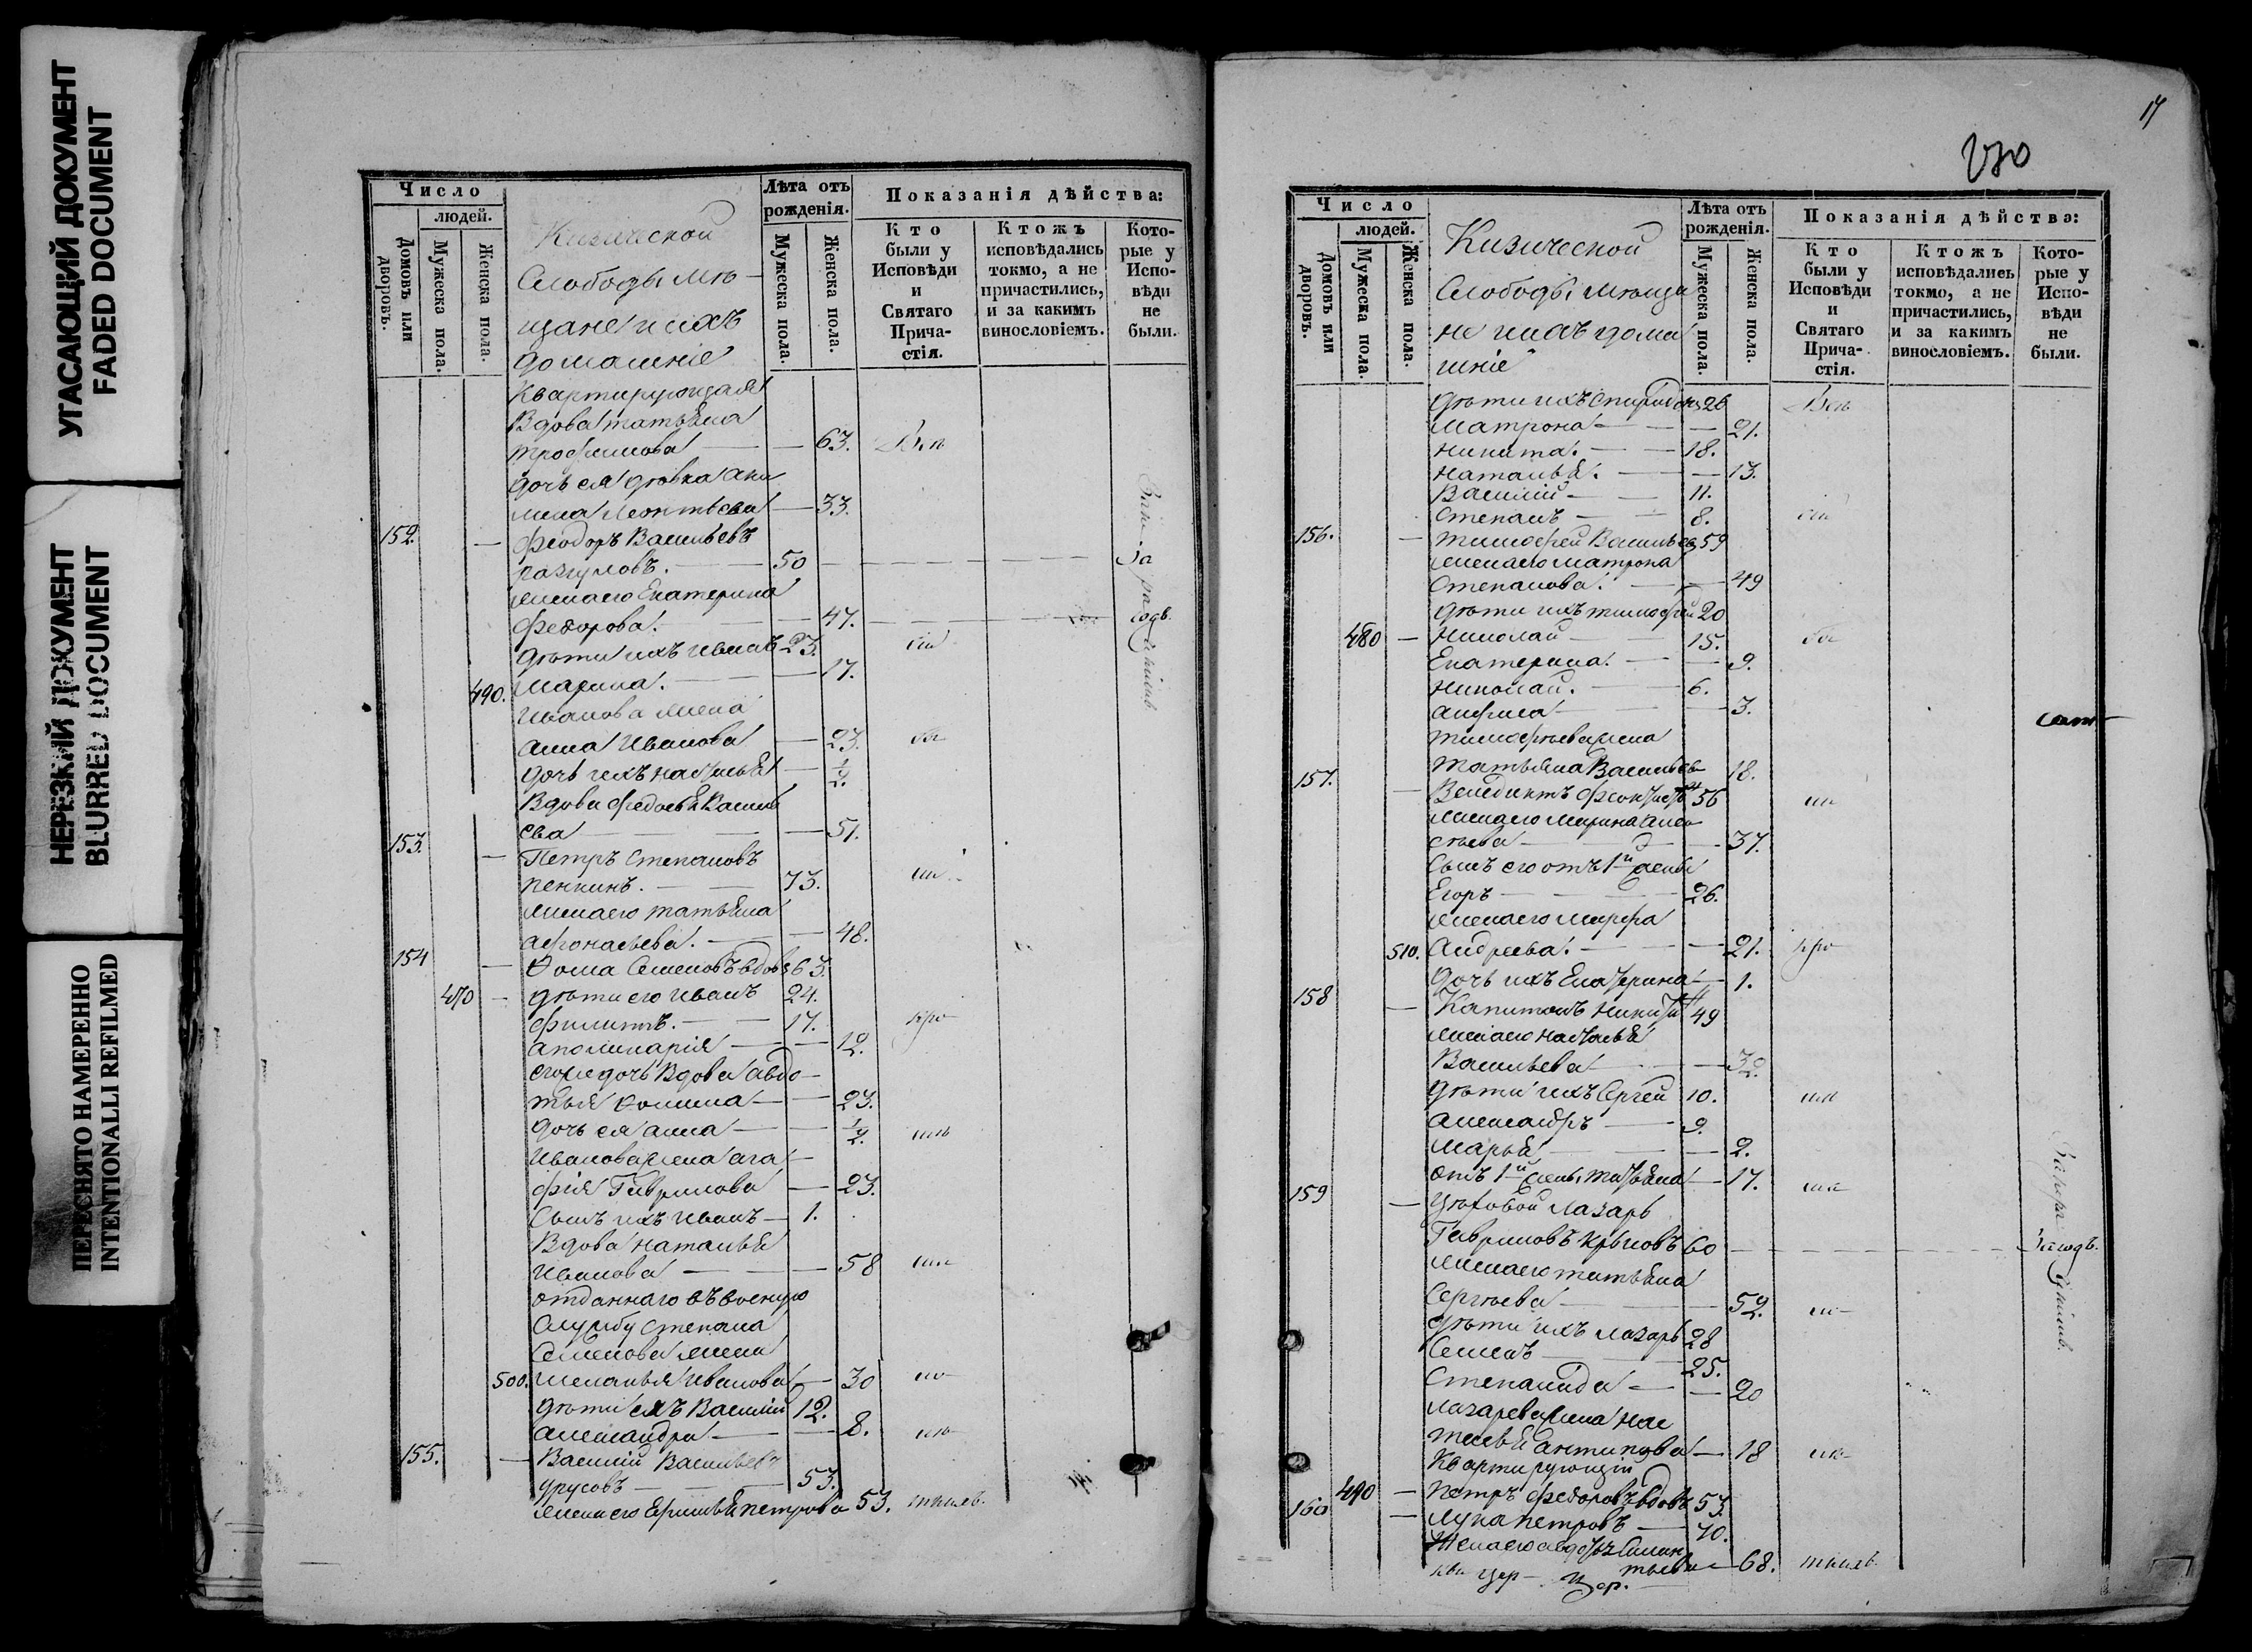 УГАСАЮЩИЙ ДОКУМЕНТ
FADED DOCUMENT
НЕРЕЗКИЙ ДОКУМЕНТ
BLURRED DOCUMENT
ПЕРЕСНЯТО НАМЕРЕННО
INTENTIONALLI REFILMED
Число
людей.
Домовъ или дворовъ.
Мужеска пола.
Женска пола.
Кизической
Слободы мѣ-
щане и ихъ
домашніе
Лѣта отъ рожденія.
Мужеска пола.
Женска пола.
Показанія дѣйства:
Кто были у Исповѣди и Святаго Прича-стія.
Ктожъ исповѣдались токмо, а не причастились, и за какимъ винословіемъ.
Кото-рые у Испо-вѣди не были.
Квартирующая
Вдова татьяна
трофимова — 63.
дочь ея дѣвка аки
лина Леонтьева — 33.
152. — Феодоръ Васильевъ
разгуловъ. — 50
жена его Екатерина
Федорова. — 47.
дѣти ихъ иванъ 23.
490. марина. — 17.
иванова жена
анна Иванова — 23.
дочь ихъ наталья — ½.
Вдова федосья Василь
ева — 51.
153. — Петръ Степановъ
пенкинъ. — 73.
жена его татьяна
афонасьева. — 48.
154 — Фома Семеновъ вдовъ 63.
470 — дѣти его иванъ 24.
филиппъ. — 17.
аполинарія — 12.
его же дочь Вдова авдо-
тья Фомина — 23.
дочь ея анна — ½.
иванова жена ага-
фія Гаврилова — 23.
Сынъ ихъ иванъ — 1.
Вдова наталья
иванова — 58
отданнаго въ военную
службу степана
Семенова жена
500. меланья иванова — 30
дѣти ихъ Василій 12.
александра — 8.
155. — Василій Васильевъ
урусовъ — 53.
жена его Ефимья петрова 53.
17
Число
людей.
Домовъ или дворовъ.
Мужеска пола.
Женска пола.
Кизической
Слободы мѣща
не и ихъ дома
шніе
Лѣта отъ рожденія.
Мужеска пола.
Женска пола.
Показанія дѣйства:
Кто были у Исповѣди и Святаго Прича-стія.
Ктожъ исповѣдались токмо, а не причастились, и за какимъ винословіемъ.
Кото-рые у Испо-вѣди не были.
дѣти ихъ спиридонъ 26
матрона — 21.
никита. — 18.
наталья. — 13.
Василій — 11.
степанъ — 8.
156. — тимофей Васильевъ 59
жена его матрона
Степанова. — 49
дѣти ихъ тимофей 20
480 — николай — 15.
Екатерина. — 9.
николай. — 6.
анфиса — 3.
тимофѣева жена
татьяна Васильева 18.
157. — Венедиктъ 56
жена его марина
37.
сынъ его отъ 1й жены
Егоръ — 26.
жена его марфа
510. андреева. — 21.
дочь ихъ Екатерина — 1.
158 — Капитонъ 49
жена его наталья
Васильева — 32.
дѣти ихъ Сергей 10.
александръ — 9.
марья — 2.
отъ 1й жены татьяна — 17.
159 — цѣховой лазарь
Гавриловъ крыловъ 60
жена его татьяна
Сергѣева — 52.
дѣти ихъ лазарь 28
Семенъ — 25.
степанида — 20
лазарева жена нас
тасья антипова — 18
Квартирующій
490 — петръ федоровъ вдовъ 53
160 — лука петровъ — 70.
Жена его
68.